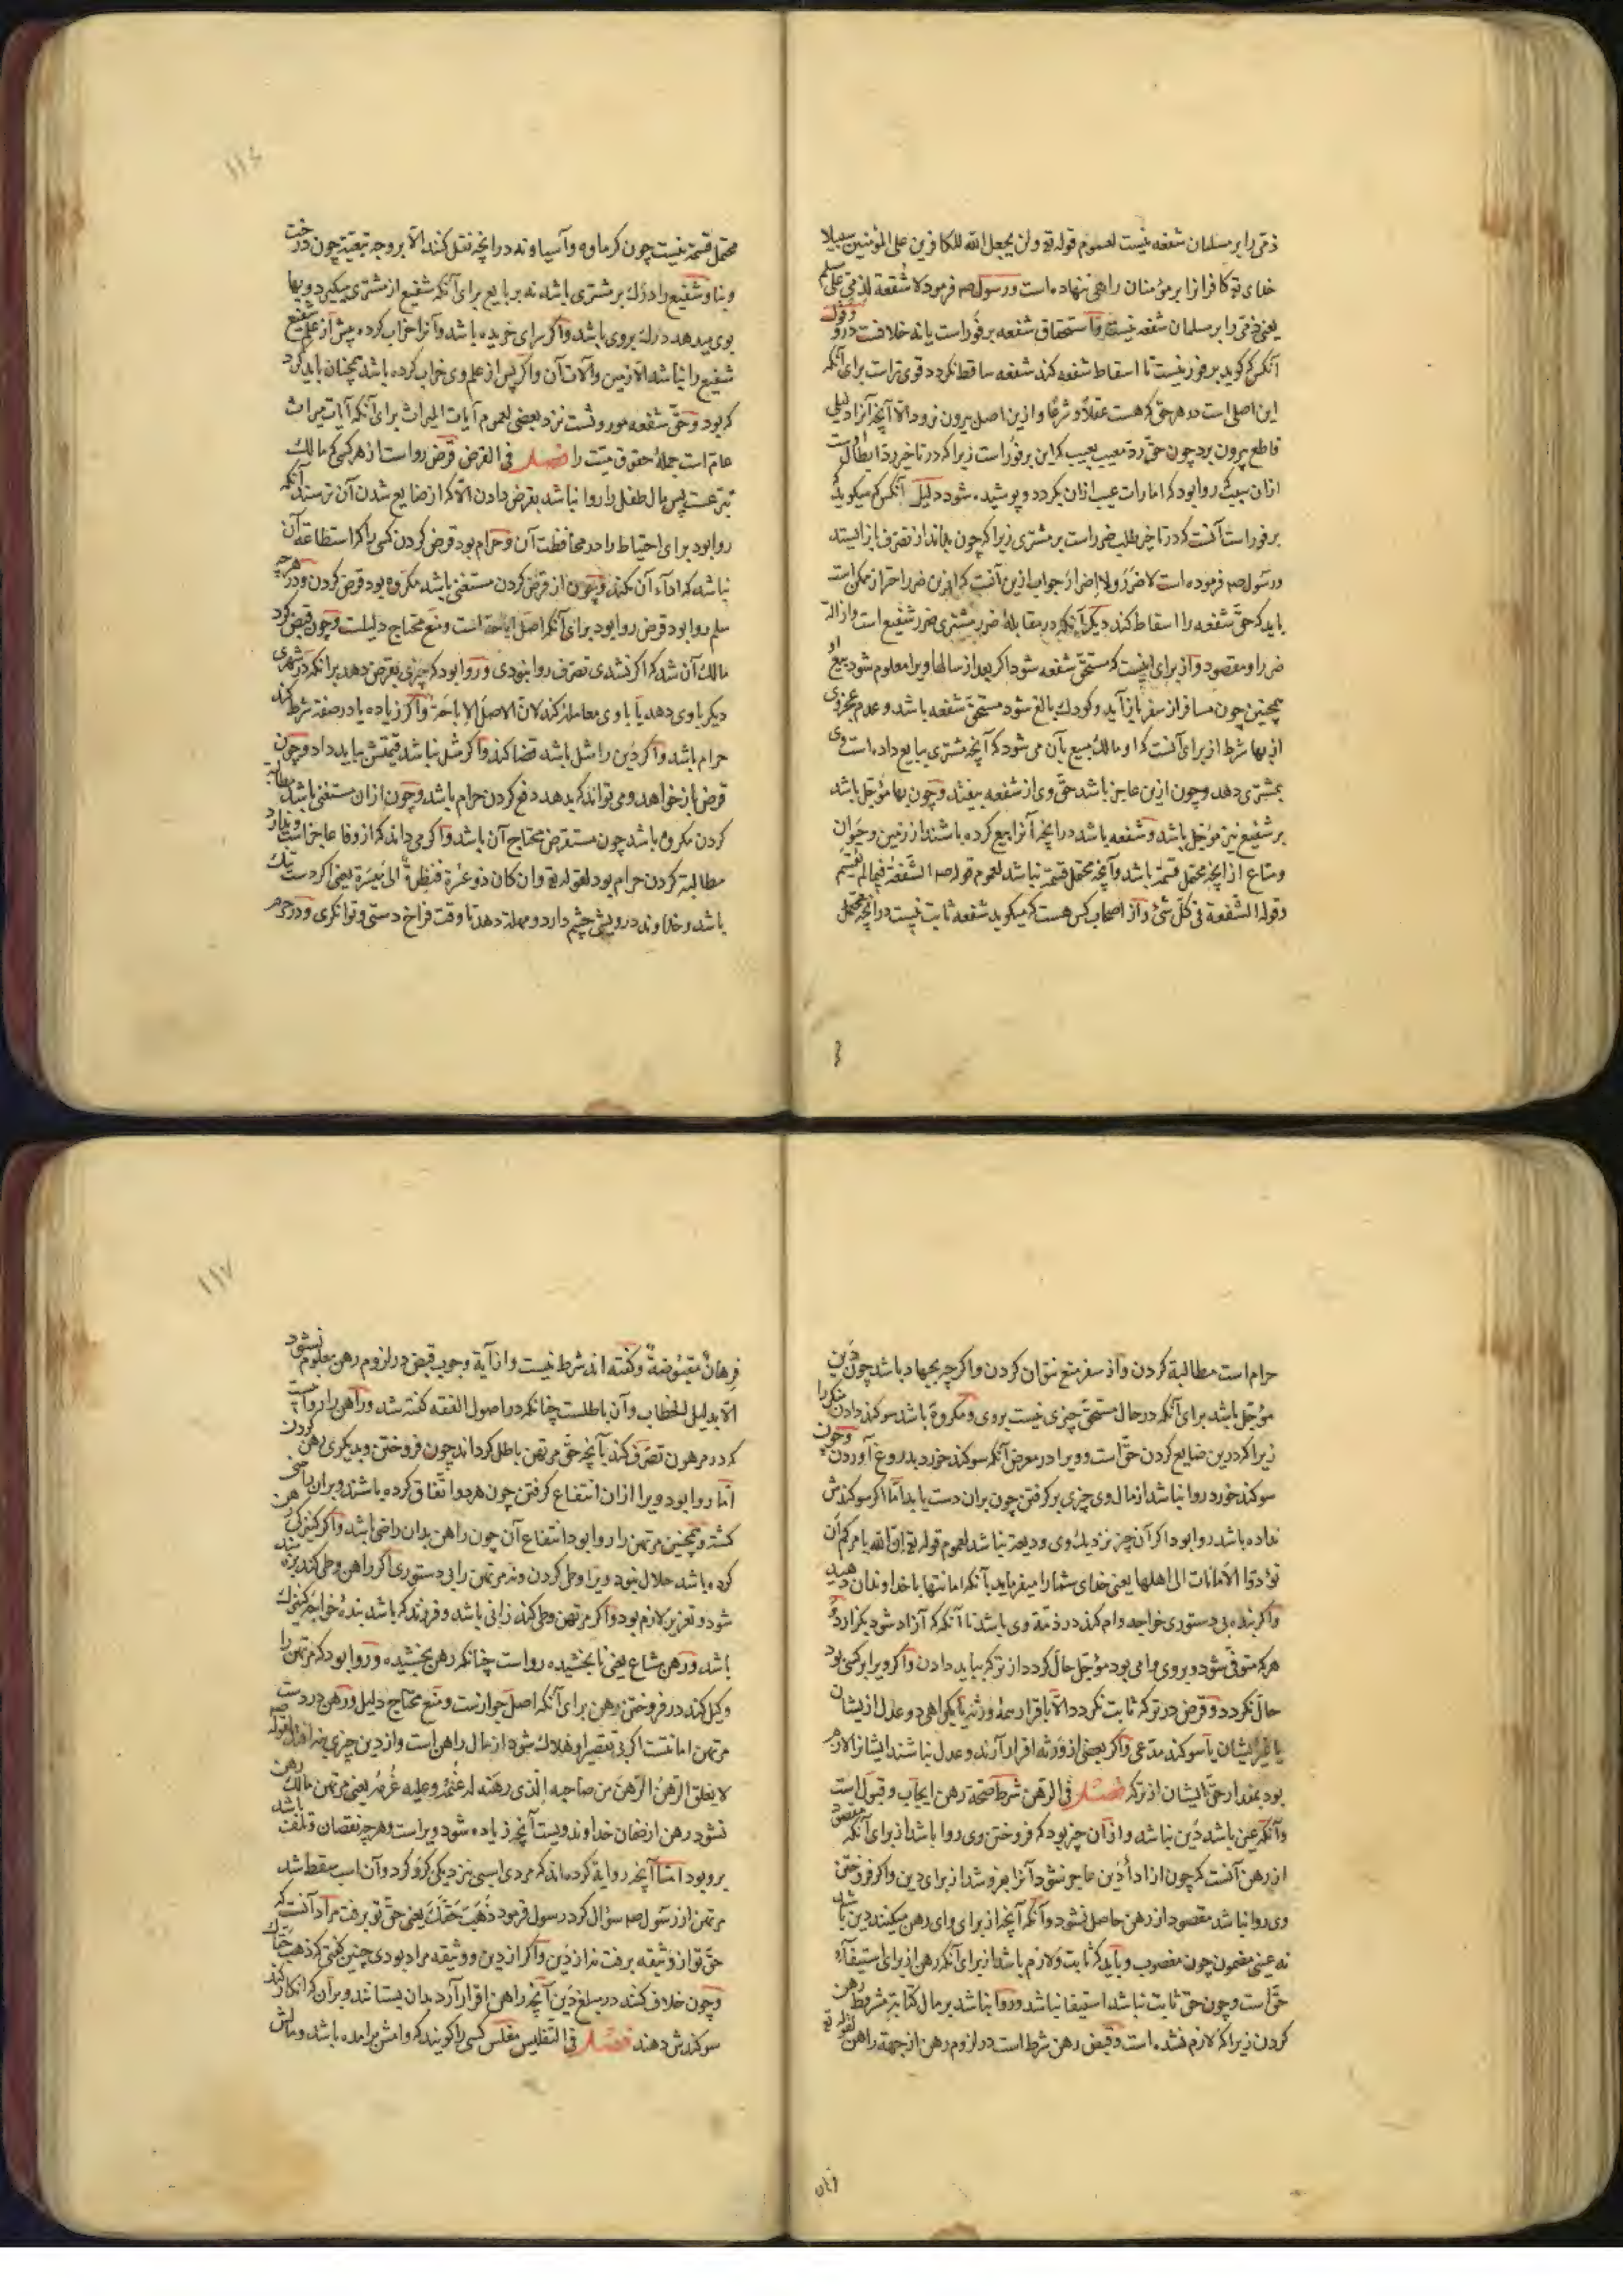 ذمی را بر مسلمان شفعه نیست لعموم قوله تع ولن یجعل الله للکافرین علی المؤمنین سبیلا
خدای تع کافرانرا بر مؤمنان راهی ننهاده است ورسول صم فرمود لا شفعة لذمی علی مسلم
یعنی ذمی را بر مسلمان شفعه نیست وآستحقاق شفعه بر فور است یا نه خلافت درو وقول
آنکس که گوید بر فور نیست تا اسقاط شفعه نکند شفعه ساقط نکردد قوی تر است برای آنکه
این اصلی است در هر حقی که هست عقلاً و شرعًا وازین اصل بیرون نرود الّا آنچه آنرا دلیلی
قاطع بیرون برد چون حقّ ردّ معیب بعیب که این بر فور است زیرا که در تاخیر رد ابطال اوست
ازان سبب روا بود که امارات عیب ازان بکردد و پوشیده شود دلیل آنکس که میکوید
بر فور است آنست که در تاخیر طلب ضرر است بر مشتری زیرا که چون بداند از تصرف باز ایستد
ورسول صم فرموده است لا ضَرَرَ ولا إضرارَ جواب ازین آنست که ازین ضرر احتراز ممکن است
باید که حقّ شفعه را اسقاط کند دیکر آنکه در مقابلهٔ ضرر مشتری ضرر شفیع است وازالة
ضرر او مقصود وآز برای اینست که مستحقّ شفعه شود اکر بعد از سالها ویرا معلوم شود بیع او
همچنین چون مسافر از سفر باز آید وکودك بالغ شود مستحق شفعه باشد وعدم عجز وی
از بها شرط از برای آنست که او مالك مبیع بآن می شود که آنچه مشتری ببایع داده است وی
بمشتری دهد وچون ازین عاجز باشد حقّ وی از شفعه بیفتد وچون بها مؤجل باشد
بر شفیع نیز مؤجل باشد وشفعه باشد در انچه آنرا بیع کرده باشند از زمین وحیوان
ومتاع از انچه محتمل قسمة باشد وآنچه محتمل قسمة نباشد لعموم قوله صم الشفعة فیما لم یقسم
وقوله الشفعة فی کلّ شیٔ وآز اصحاب کس هست که میکوید شفعه ثابت نیست در انچه محتمل
۱۱٤
محتمل قسمة نیست چون کرماوه وآسیا ونه در انچه نقل کنند الّا بر وجه تبعیّة چون درخت
وبنا وشفیع را درك بر مشتری باشد نه بر بایع برای آنکه شفیع از مشتری میکیرد وبها
بوی میدهد درك بروی باشد وآکر سرای خریده باشد وآنرا خراب کرده پیش از علم شفیع
شفیع را نباشد الّا زمین وآلات آن واکر پس از علم وی خراب کرده باشد همچنان باید کرد
که بود وحقّ شفعه موروثست نزد بعضی لعموم آیات المیراث برای آنکه آیات میراث
عامّ است جملهٔ حقوق میّت را فصل فی القرض قرض رواست از هر کسی که مالك
تبرعست پس مال طفل را روا نباشد بقرض دادن الّا که از ضایع شدن آن ترسند آنکه
روا بود برای احتیاط را در محافظت آن وحرام بود قرض کردن کسی را که استطاعة آن
نباشد که اداء آن بکند وچون از قرض کردن مستغنی باشد مکروه بود قرض کردن ودر هرچه
سلم روا بود قرض روا بود برای آنکه اصل اباحة است ومنع محتاج دلیلست وچون قبض کرد
مالك آن شد که اکر نشدی تصرّف روا نبودی وروا بود که چیزی بقرض دهد برانکه در شهری
دیکر باوی دهد یا باوی معامله کند لانّ الاصل الاباحة وآکر زیاده یا در صفة شرط کند
حرام باشد وآکر دین را مثل باشد قضا کند واکر مثل نباشد قیمتش بباید داد وچون
قرض باز خواهد ومی تواند که بدهد دفع کردن حرام باشد وچون ازان مستغنی باشد مطالبه
کردن مکروه باشد چون مستقرض محتاج آن باشد واکر می داند که از وفا عاجز است وندارد
مطالبة کردن حرام بود لقوله تع وان کان ذو عسرة فنظرةٌ الی میسرة یعنی اکر دست تنك
باشد وخداوند درویشی چشم دارد ومهلة دهد تا وقت فراخ دستی وتوانکری ودر حرم
حرام است مطالبة کردن وآز سفر منع نتوان کردن واکرچه بجهاد باشد چون دَین
مؤجل باشد برای آنکه در حال مستحقّ چیزی نیست بروی ومکروه باشد سوکند دادن منکر را
زیرا که درین ضایع کردن حقّ است وویرا در معرض آنکه سوکند خورد بدروغ آوردن وچون
سوکند خورد روا نباشد از مال وی چیزی برکرفتن چون بران دست یابد امّا اکر سوکندش
نداده باشد روا بود اکر آن چیز نزدیك وی ودیعة نباشد لعموم قوله تع إنّ الله یامرکم أن
تؤدّوا الأمانات الی اهلها یعنی خدای شما را میفرماید بآنکه امانتها با خداوندان دهید
وآکر بنده بی دستوری خواجه وام کند در ذمّة وی باشد تا آنکه که آزاد شود بکزارد
هرکه متوفّی شود وبروی وامی بود مؤجّل حالّ کردد از ترکه بباید دادن وآکر ویرا بر کسی بود
حالّ نکردد وقرض در ترکه ثابت نکردد الّا باقرار همهٔ ورثه یا بکواهی دو عدل ازیشان
یا غیر ایشان با سوکند مدّعی وآکر بعضی از ورثه اقرار آرند وعدل نباشند ایشانرا لازم
بود بمقدار حقّ ایشان از ترکه فصل فی الرهن شرط صحّة رهن ایجاب وقبول است
وآنکه عین باشد دَین نباشد وازان چیز بود که فروختن وی روا باشد از برای آنکه مقصود
از رهن آنست که چون از اداءِ دَین عاجز شود آنرا بفروشد از برای دین واکر فروختن
وی روا نباشد مقصود از رهن حاصل نشود وآنکه آنچه از برای وای رهن میکنند دین باشد
نه عینی مضمون چون مغصوب وبآید که ثابت ولازم باشد از برای آنکه رهن از برای استیفآء
حقّ است وچون حقّ ثابت نباشد استیفا نباشد وروا نباشد بر مال کتابة مشروط رهن
کردن زیرا که لازم نشده است وقبض رهن شرط است در لزوم رهن از جهة راهن لقوله تع
۱۱۷
فرِهانٌ مقبُوضةٌ وکفته اند شرط نیست واز آیة وجوب قبض در لزوم رهن معلوم نشود
الّا بدلیل الخطاب وآن باطلست چنانکه در اصول الفقه کفته شد وراهن را روا نیست
که در مرهون تصرّف کند بآنچه حقّ مرتهن باطل کرداند چون فروختن وبدیکری رهن کردن
امّا روا بود ویرا ازان انتفاع کرفتن چون هر دو اتّفاق کرده باشند وبران راضی
کشته وهمچنین مرتهن را روا بود انتفاع آن چون راهن بدان راضی باشد وآکر کنیزکی رهن
کرده باشد حلال نبود ویرا وطی کردن ونه مرتهن را بی دستوری اکر راهن وطی کند بزه مند
شود وتعزیر لازم بود واکر مرتهن وطی کند زانی باشد وفرزند که باشد بندهٔ خواجه کنیزك
باشد ورهن مشاع یعنی نابخشیده رواست چنانکه رهن بخشیده وروا بود که مرتهن را
وکیل کند در فروختن رهن برای آنکه اصل جوازست ومنع محتاج دلیل ورهن در دست
مرتهن امانتست اکر بی تقصیر او هلاك شود از مال راهن است واز دین چیزی نیفتد لقوله صم
لا یغلق الرّهنُ الرّهنَ من صاحبه الّذی رهنَه له غُنمُه وعلیه غُرمُه یعنی مرتهن مالك رهن
نشود رهن از ضمان خداوند ویست آنچه زیاده شود ویراست وهرچه نقصان وتلفت باشد
برو بود امّا آنچه روایة کرده اند که مردی اسبی نزدیکی کرو کرد وآن اسب سقط شد
مرتهن از رسول صم سؤال کرد رسول فرمود ذَهَبَ حَقُّكَ یعنی حقّ تو برفت مراد آنست که
حقّ تو از وثیقه برفت نه از دَین وآکر از دین ووثیقه مراد بودی چنین کفتی که ذهب حقّاك
وچون خلاف کنند در مبلغ دَین آنچه راهن اقرار آرد بدان بستانند وبرآن که انکار کند
سوکندش دهند فصل فی التّفلیس مفلس کسی را کویند که وامش برامده باشد ومالش